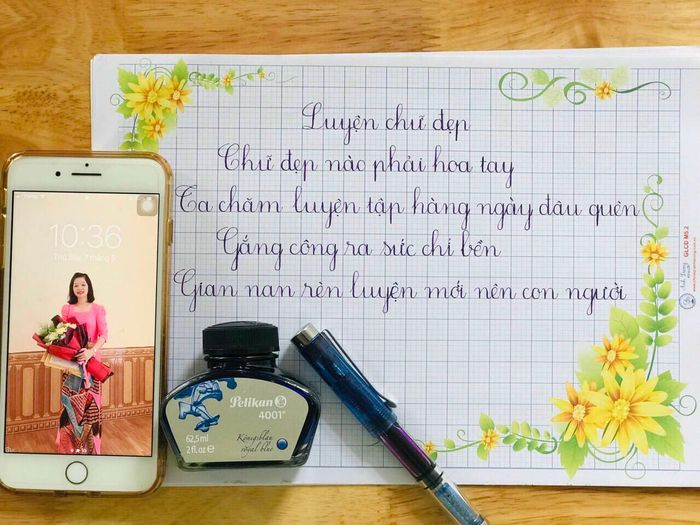 Luyện chữ đẹp
Chữ đẹp nào phải hoa tay
Ta chăm luyện tập hàng ngày đâu quên
Gắng công ra sức chí bền
Gian nan rèn luyện mới nên con người
10:36
Thứ Bảy, 7 tháng 5
Pelikan
4001
62,5 ml
2 fl. oz
Königsblau
royal blue
GLCĐ MS.2